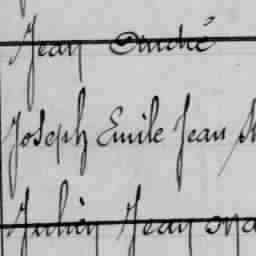 Jean André
Joseph Emile Jean
Julien Jean